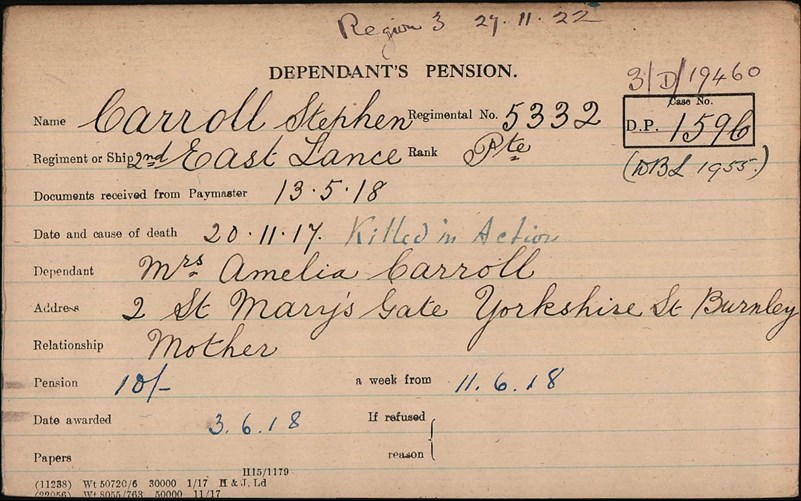 Region 3 29.11.22
DEPENDANT'S PENSION.
3/D/19460
Name Carroll Stephen Regimental No. 5332
Case No.
D.P. 1596
Regiment or Ship 2nd East Lance Rank Pte
(DBL 1955.)
Documents received from Paymaster 13.5.18
Date and cause of death 20.11.17. Killed in Action
Dependant Mrs Amelia Carroll
Address 2 St Mary's Gate Yorkshire St Burnley
Relationship Mother
Pension 10/- a week from 11.6.18
Date awarded 3.6.18 If refused
Papers reason
H15/1179
(11238) Wt 50720/6 30000 1/17 H & J, Ld
(22056) Wt 8055/763 50000 11/17